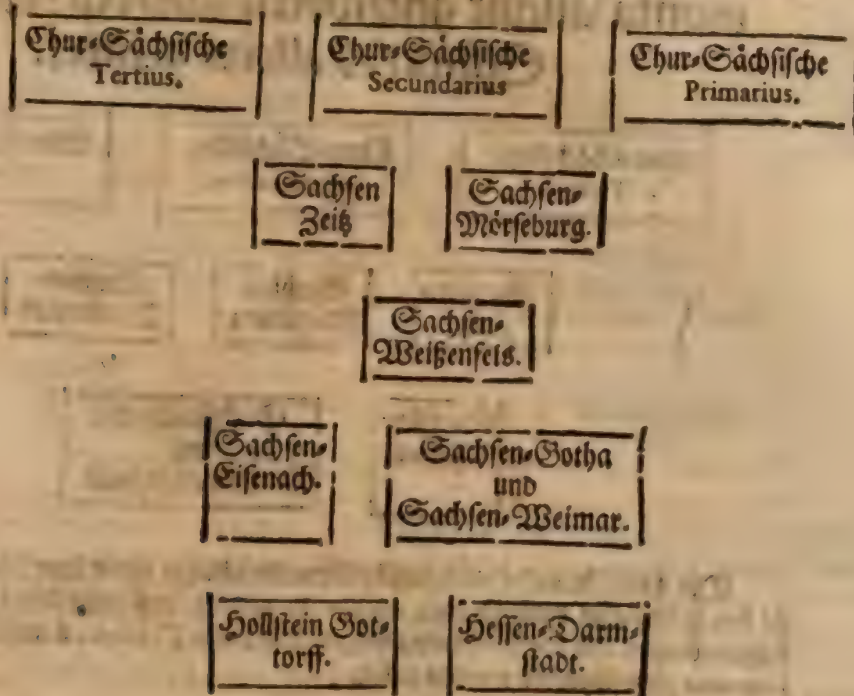 Chur-Sächsische
Tertius.
Chur-Sächsische
Secundarius
Chur-Sächsische
Primarius.
Sachsen
Zeitz
Sachsen-
Mörseburg.
Sachsen-
Weißenfels.
Sachsen-
Eisenach.
Sachsen-Gotha
und
Sachsen-Weimar.
Hollstein Got-
torff.
Hessen-Darm-
stadt.